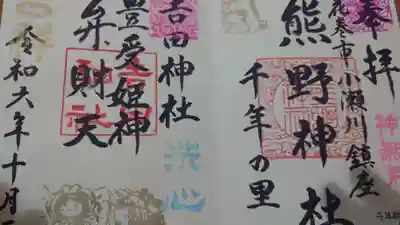 奉拝
花巻市小瀬川鎮座
熊野神社
千年の里
吉田神社
洗心
豊受姫神
弁財天
令和六年十月